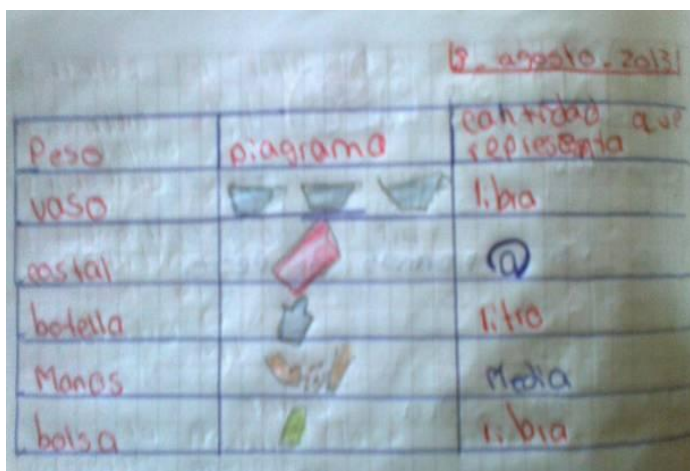 8 - agosto - 2013
Peso Diagrama cantidad que
representa
vaso libra
costal @
botella litro
Manos Media
bolsa libra